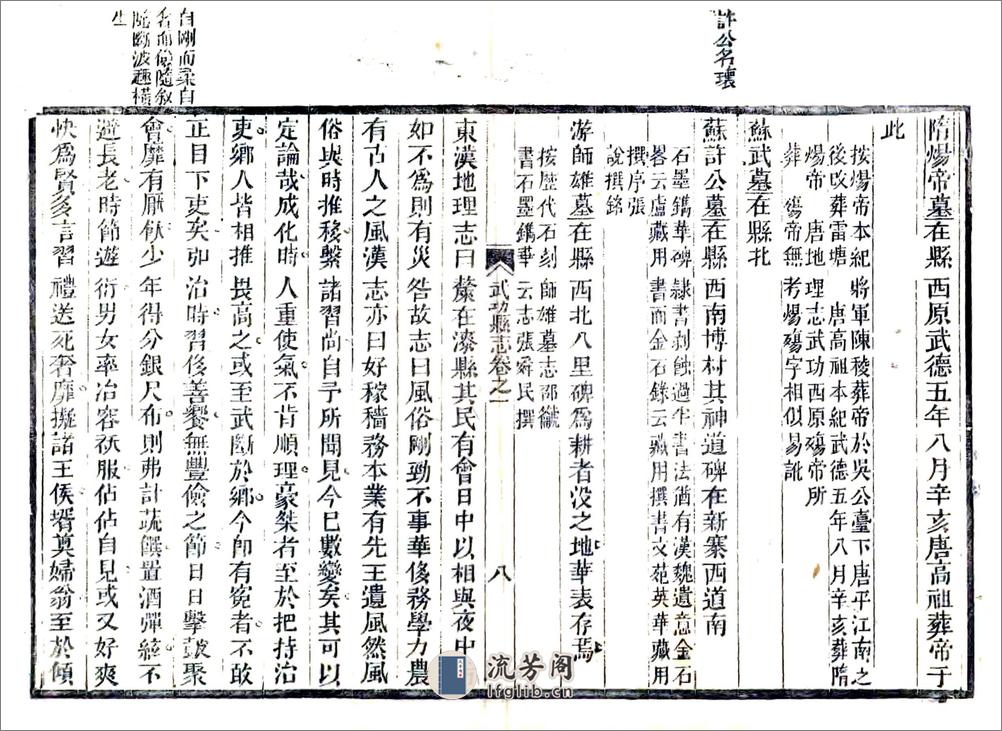 許公名瓌
隋煬帝墓在縣西原武德五年八月辛亥唐高祖葬帝于
此
按煬帝本紀將軍陳稜葬帝於吳公臺下唐平江南之
後改葬雷塘 唐高祖本紀武德五年八月辛亥葬隋
煬帝 唐地理志武功西原殤帝所
葬 殤帝無考煬殤字相似易訛
蘇武墓在縣北
蘇許公墓在縣西南博村其神道碑在新寨西道南
石墨鐫華碑隸書剝蝕過半書法猶有漢魏遺意金石
畧云盧藏用書而金石錄云藏用撰書文苑英華藏用
撰序張
說撰銘
游師雄墓在縣西北八里碑爲耕者没之地華表存焉
按歷代石刻師雄墓志邵䶵
書石墨鐫華云志張舜民撰
武功縣志卷之一 八
東漢地理志曰斄在漆縣其民有會日中以相與夜中
如不爲則有災咎故志曰風俗剛勁不事華侈務學力農
有古人之風漢志亦曰好稼穡務本業有先王遺風然風
俗與時推移繫諸習尚自予所聞見今已數變矣其可以
定論哉成化時人重使氣不肯順理豪桀者至於把持治
吏鄉人皆相推畏高之或至武斷於鄉今即有冤者不敢
正目下吏矣弘治時習侈善饗無豐儉之節日日擊鼓聚
會靡有厭飫少年得分銀尺布則弗計蔬饌置酒彈絃不
避長老時節遊衍男女率冶容袨服佔佔自見或又好爽
快爲賢多言習禮送死奢靡擬諸王侯壻奠婦翁至於傾
自剛而柔自
奢而儉隨敘
隨斷波趣橫
生
流芳阁
lfglib.cn